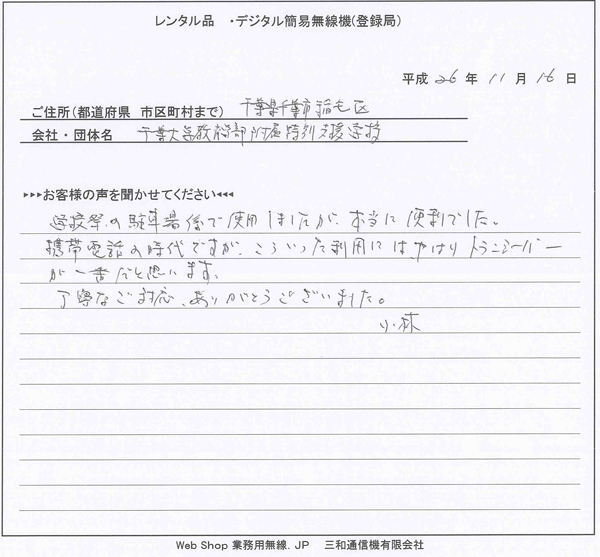 レンタル品 ・デジタル簡易無線機(登録局)
平成 26 年 11 月 16 日
ご住所(都道府県 市区町村まで) 千葉県千葉市稲毛区
会社・団体名 千葉大学教育学部附属特別支援学校
▸▸▸お客様の声を聞かせてください◂◂◂
学校祭の駐車場係で使用しましたが、本当に便利でした。
携帯電話の時代ですが、こういった利用にはやはりトランシーバー
が一番だと思います。
丁寧なご対応、ありがとうございました。
小林
Web Shop 業務用無線.JP 三和通信機有限会社